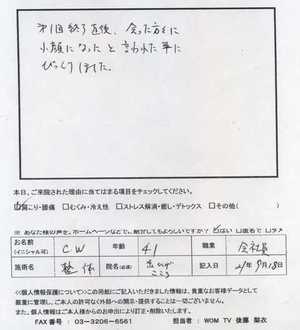 第1回終了直後、会った方々に
小顔になったと言われた事に
びっくりしました。
本日、ご来院された理由に当てはまる項目をチェックしてください。
☑肩こり・腰痛 □むくみ・冷え性 □ストレス解消・癒し・デトックス □その他( )
※ あなた様の声を、ホームページなどで、紹介してもよろしいですか? □はい □匿名で □ダメ
お名前 (イニシャル可) CW 年齢 41 職業 会社員
施術名 整体 院名(必須) 記入日 21年9月18日
<個人情報保護について>この用紙にご記入いただきました情報は、貴重なお客様データとして
厳重に管理し、ご本人の許可なく外部への開示・提供することは一切ございません。
また、個人情報はご本人様からのお申出により訂正・削除いたします。
FAX番号:03-3206-6561 担当者:WOM TV 後藤 梨衣